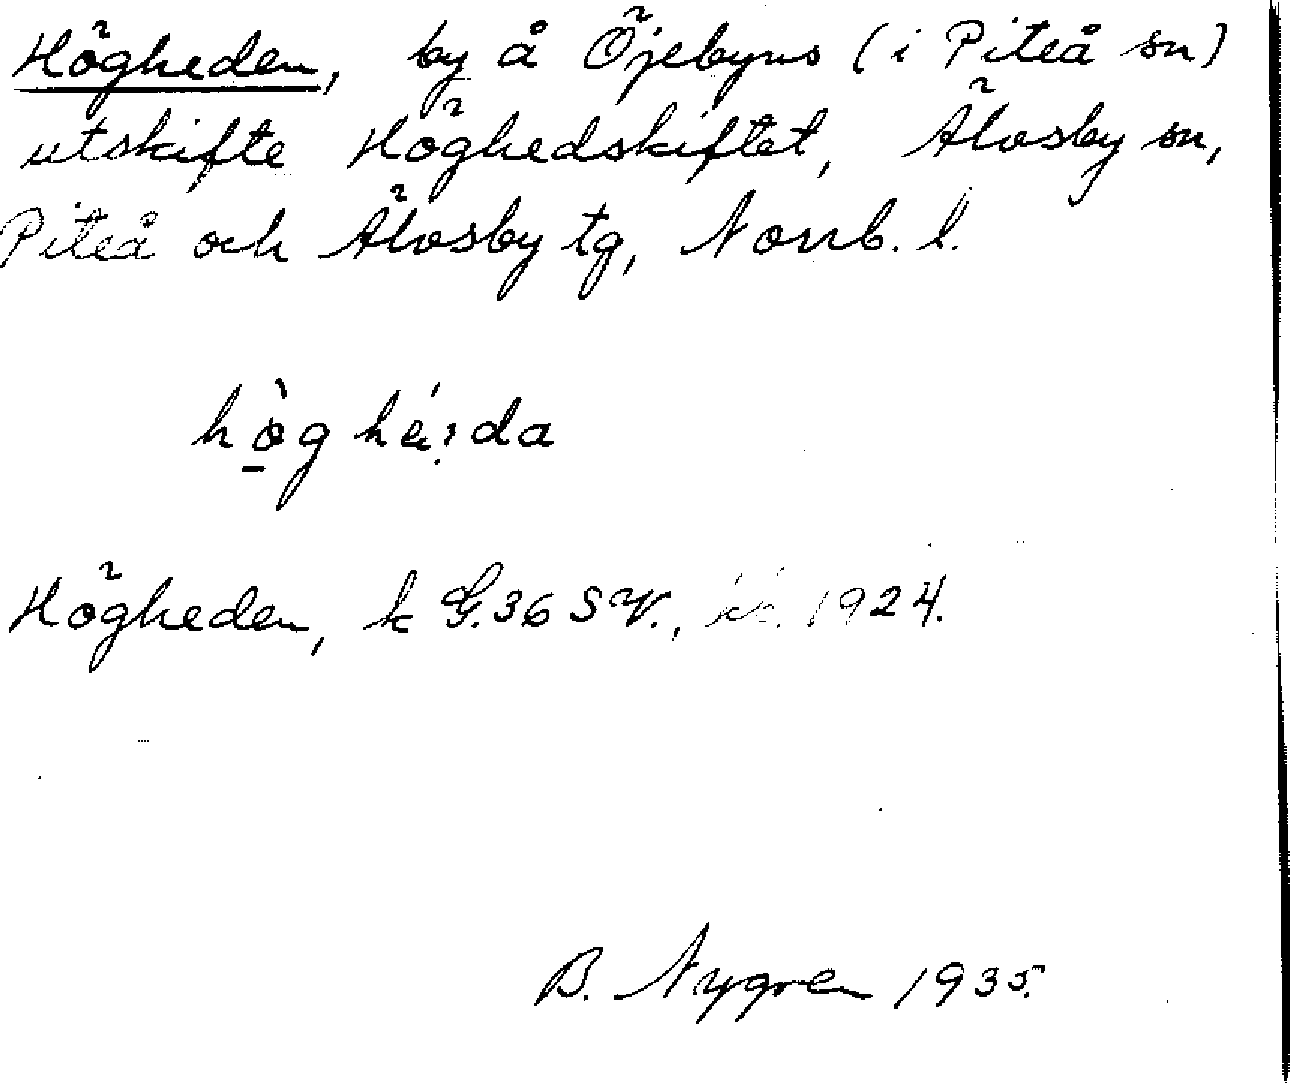 Högheden, by å Öjebyns (i Piteå sn)
utskifte Höghedskiftet, Älvsby sn,
Piteå och Älvsby tg, Norrb. l.
hò̱g hẹ́:da
Högheden, k G.36 SV., 1924.
B. Nygren 1935.